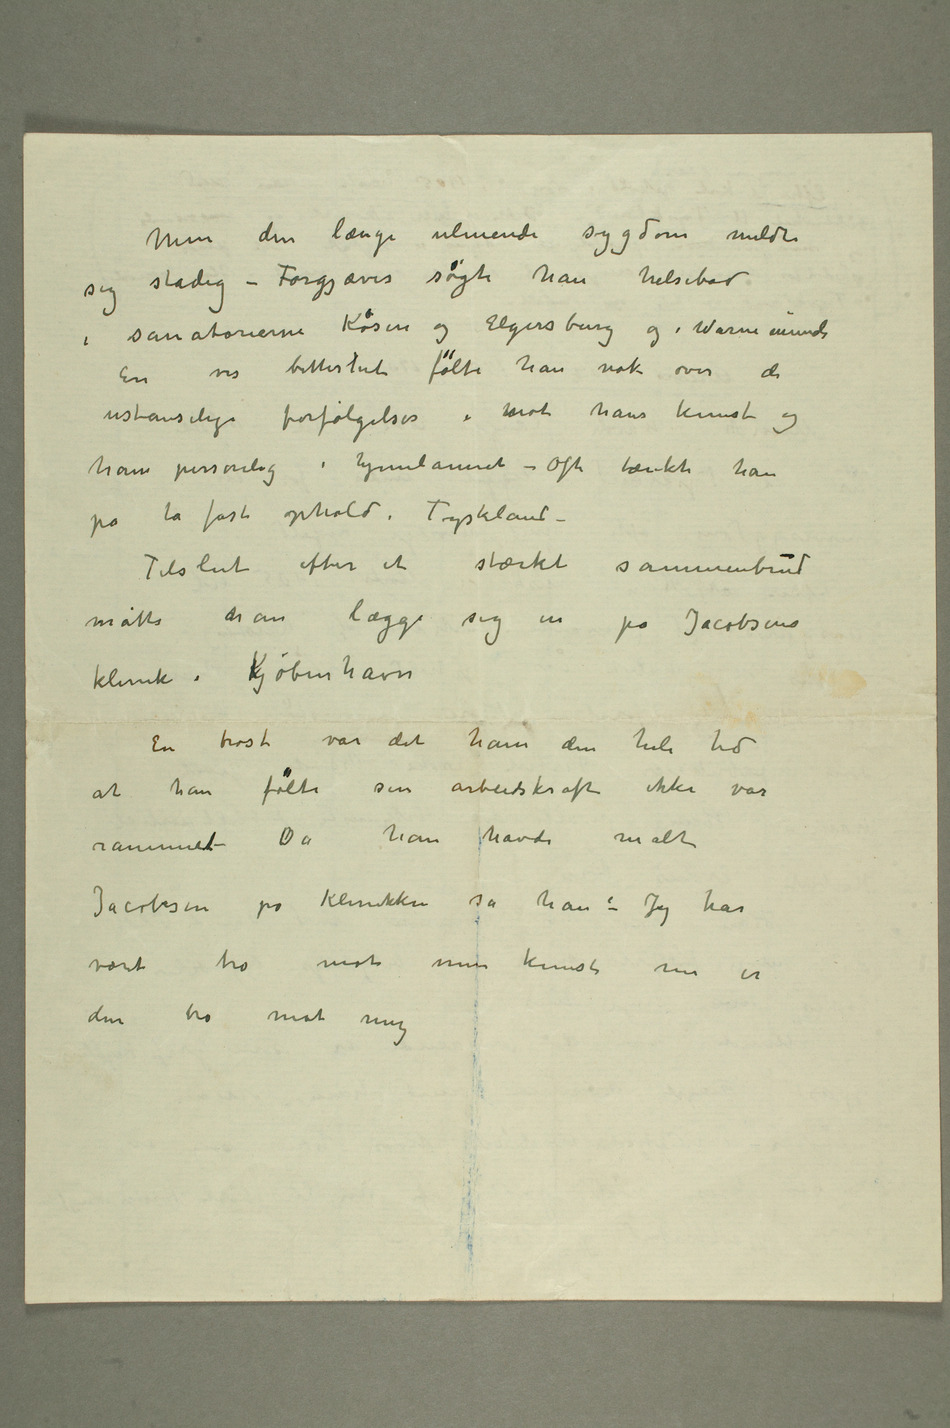 Men den længe ulmende sygdom meldte
sig stadig – Forgjæves søgte han helsebod
i sanatorierne Køsen og Elgersburg og i Warnemünde
En vis bitterhet følte han nok over de
ustanselige forfølgelser i mot hans kunst og
ham personlig i hjemlannet – Ofte tænkte han
på ta fast ophold i Tyskland –
Tilslut efter et stærkt sammenbrud
måtte han lægge sig in på Jacobsens
klinik i Kjøbenhavn
En trøst var det ham den hele tid
at han følte sin arbeidskraft ikke var
rammet – Da han havde malt
Jacobsen på Klinikken sa han: – Jeg har
vært tro mot min kunst nu er
den tro mot mig